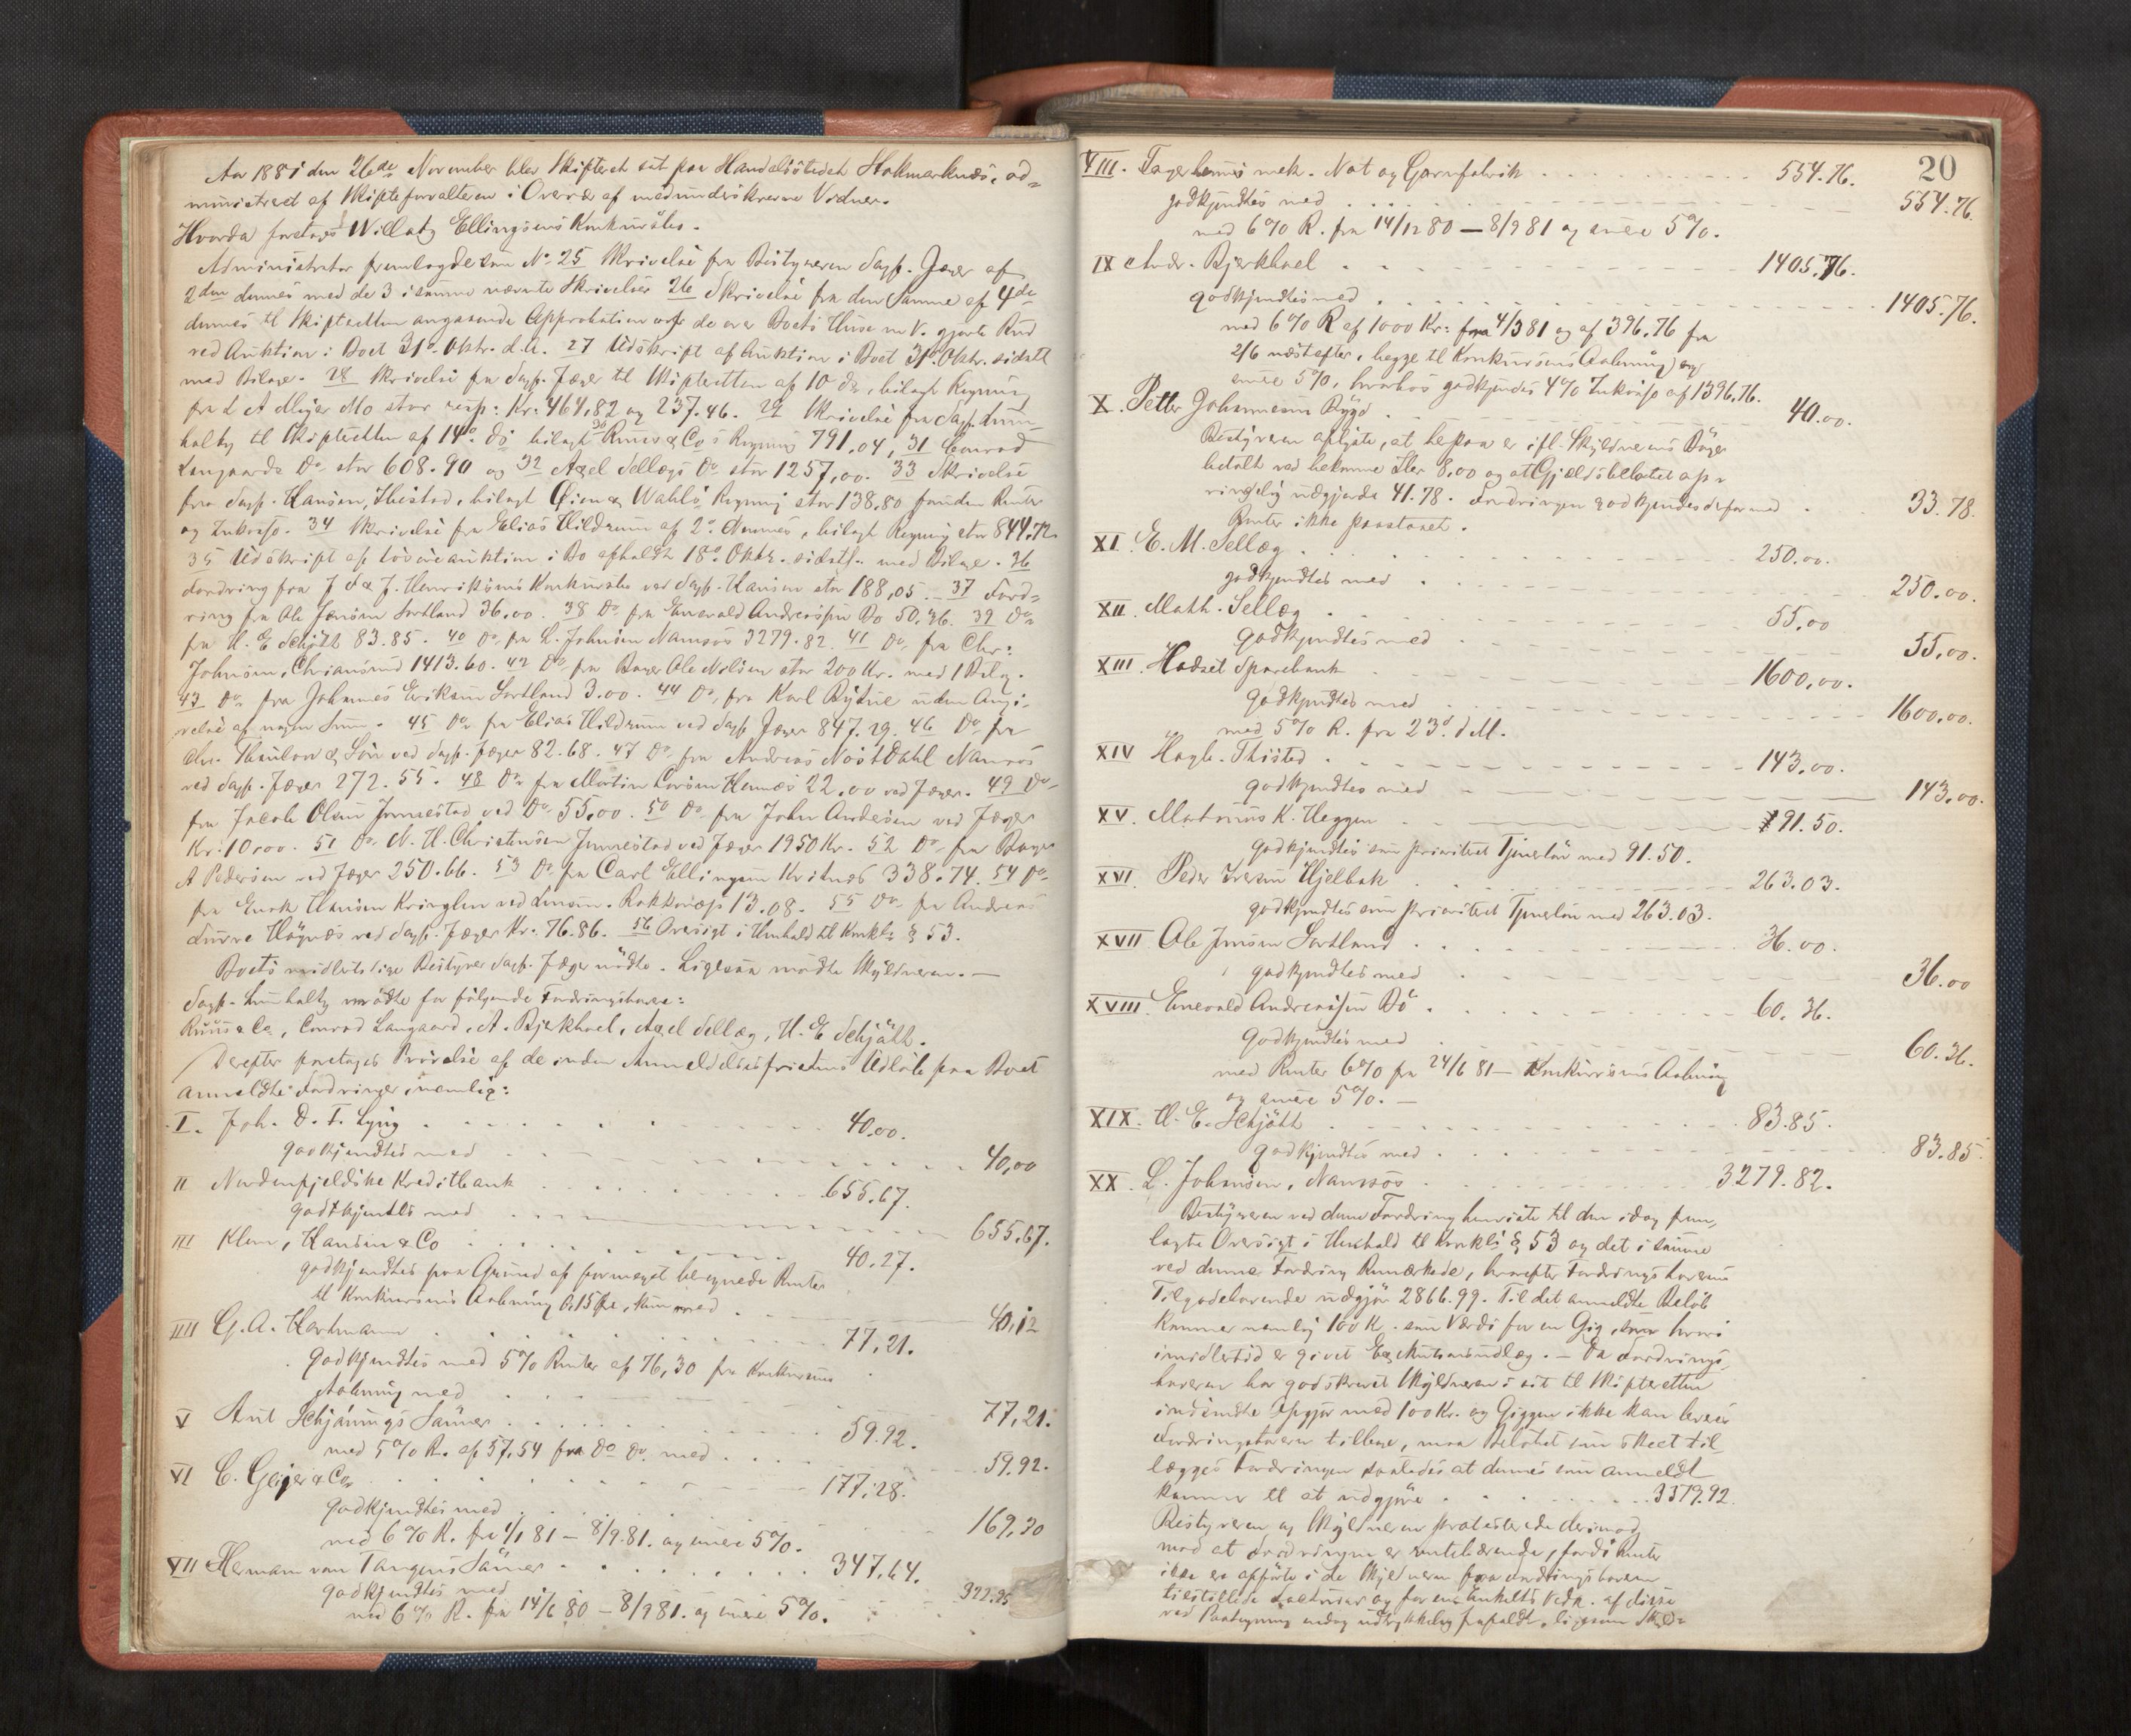 Aar 1881 den 26de November blev Skifteret sat paa Handelsstedet Stokmarknæs, ad-
ministreret af Skifteforvalteren i Overvær af medunderskrevne Vidner.
Hvorda foretoges Willatz Ellingsens Konkursbo.
Administrator fremlagde som No 25 Skrivelse fra Bestyreren Sagf. Jæger af
2den dennes med de 3 i samme nævnte Skrivelser 26 Skrivelse fra den Samme af 4de
dennes til Skifteretten angaaende Approbation af de over Boets Huse m. V. gjorte Bud
ved Auktion i Boet 31te Oktbr. d. A. 27 Udskrift af Auktion i Boet 31te Oktbr. sidstl.
med Bilage. 28 Skrivelse fra Sagf. Jæger til Skifteretten af 10 ds, bilagt Regning
fra L A Meyer Mo stor resp: Kr: 464,82 og 237.46. 29 Skrivelse fra Sagf. Lum-
holtz til Skifteretten af 14de ds bilagt 30 Ruus & Co s Regning 791.04, 31 Conrad
Langaards Do stor 608.90 og 32 Axel Sellægs Do stor 1257,00. 33 Skrivelse
fra Sagf. Hansen, Thistad, bilagt Øien & Wahls Regning stor 138.80 foruden Renter
og Inkasso. 34 Skrivelse fra Elias Hildrum af 2de dennes, bilagt Regning stor 844.72
35 Udskrift af Løsøreauktion i Bo afholdt 18de Oktbr. sidstl. med Bilage. 36
Fordring fra J. J. Henriksens Konkursbo ved Sagf. Hansen stor 188,05. 37 Ford-
ring fra Ole Jensen Sortland 36.00. 38 Do fra Enevald Andreassen Bø 50.36. 39 Do
fra H. E Schjøtt 83.85. 40 Do fra L. Johnsen Namsos 3279.82. 41 Do fra Chr:
Johnsen, Christiansund 1413.60. 42 Do fra Bager Ole Nilsen stor 200 Kr. med 1 Bilag.
43 Do fra Johannes Eriksen Sortland 3.00. 44 Do fra Karl uden Angi-
velse af nogen Sum. 45 Do fra Elias Hildrum ved Sagf Jæger 847.29. 46 Do fra
Chr. Thaulow & Søn ved Sagf. Jæger 82.68. 47 Do fra Andreas Nøst Dahl Namsos
ved Sagf. Jæger 272.55. 48 Do fra Martin Larsen Hennes 22.00 ved Jæger. 49 Do
fra Jacob Olsen Jennestad ved Do 55,00. 50 Do fra John Andersen ved Jæger
Kr: 10,00. 51 Do N. H. Christensen Jennestad ved Jæger 1950 Kr. 52 Do fra Bager
A Pedersen ved Jæger 250.66. 53 Do fra Carl Ellingsen Kvitnes 338.74. 54 Do
fra Enok Hansen Kringlen ved Lensm. 13.08. 55 Do fra Andreas
Høgnæs ved Sagf. Jæger Kr. 76.86. 56 Oversigt i Henhold til Konkl: § 53.
Boets midlertidige Bestyrer Sagf. Jæger mødte. Ligesaa mødte Skyldneren. —
Sagf. Lumholtz mødte for følgende Fordringshavere:
Ruus & Co, Conrad Langaard, A. Bjerkhoel, Axel Sellæg, H. E Schjøtt.
Derefter foretoges Prøvelse af de inden Anmeldelsesfristens Udløb paa Boet
anmeldte Fordringer, nemlig:
I. Joh. D. F. Lyng 40,00.
godkjendtes med 40,00
II Nordenfjeldske Kreditbank 655.67.
godkjendtes med 655,67.
III Klem, Hansen & Co 40.27.
godkjendtes paa Grund af formeget beregnede Renter
til Konkursens Aabning 15 Øre, kun med 40,12
IIII G. A. Hartmann 77,21.
godkjendtes med 5% Renter af 76,30 fra Konkursens
Aabning med 77,21.
V Ant Schjønings Sønner 59.92.
med 5% R. af 57.54 fra Do Do. med 59.92.
VI C. Geijer & Co 177.28.
godkjendtes med 169,30
med 6% R. fra 1/1 81 — 8/9.81. og senere 5%.
VII Herman von Tangens Sønner 347,64.
godkjendtes med 322.25
med 6% R. fra 14/6 80 — 8/9 81. og senere 5%.
20
VIII. Fagerheims mek. Not og Garnfabrik 554.76.
godkjendtes med 554.76.
med 6% R. fra 14/12 80 — 8/9 81 og senere 5%.
IX Andr. Bjerkhoel 1405.76.
godkjendtes med 1405.76.
med 6% R af 1000 Kr: fra 4/3 81 og af 396.76 fra
2/6 næstefter, begge til Konkursens Aabning og
senere 5%, hvorhos godkjendes 4% Inkasso af 1396.76.
X. Petter Johannesen Bygd 40.00.
Bestyreren oplyste, at herpaa er ifl. Skyldnerens Bøger
betalt ved 8.00 og at Gjældsbeløbet op-
rindelig udgjorde 41.78. Fordringen godkjendes derfor med 33.78.
Renter ikke paastaaet.
XI. E. M. Sellæg 250.00.
godkjendtes med 250.00.
XII Math. Sellæg 55,00
godkjendtes med 55,00.
XIII. Hadsel Sparebank 1600,00.
godkjendtes med 1600,00.
med 5% R. fra 23d. d. M.
XIV Hagb. Thisted 143,00.
godkjendtes med 143,00.
XV. Martinus K. Heggen 91.50.
godkjendtes som prioriteret Tjenerløn med 91.50.
XVI. Peder Iversen Hjelbak 263.03.
godkjendtes som prioriteret Tjenerløn med 263.03.
XVII Ole Jensen Sortland 36.00.
godkjendtes med 36.00
XVIII. Enevald Andreassen Bø 60,36.
godkjendtes med 60.36.
med Renter 6% fra 24/6 81 — Konkursens Aabning
og senere 5%. —
XIX. H. E. Schjøtt 83.85.
godkjendtes med 83.85.
XX. L. Johnsen, Namsos 3279.82.
Bestyreren ved denne Fordring henviste til den idag frem-
lagte Oversigt i Henhold til Konkls § 53 og det i samme
ved denne Fordring Bemærkede, hvorefter Fordringshaverens
Tilgodehavende udgjør 2866.99. Til det anmeldte Beløb
kommer nemlig 100 K. som Værdi for en Gig, hvori
imidlertid er givet Exekutionsudlæg. — Da Fordrings-
haveren har godskrevet Skyldneren i sit til Skifteretten
indsendte Opgjør med 100 Kr. og Giggen ikke kan leveres
Fordringshaveren tilbage, maa Beløbet som skeet til-
lægges Fordringen saaledes at dennes som anmeldt
kommer til at udgjøre 3379.92.
Bestyreren og Skyldneren protesterede derimod
mod at Fordringen er rentebærende, fordi Renter
ikke er opførte i de Skyldneren fra Fordringshaveren
tilstillede Fakturaer og for en Enkelts Vedk. af disse
ved Paategning endog udtrykkelig frafaldt, ligesom Skyld-